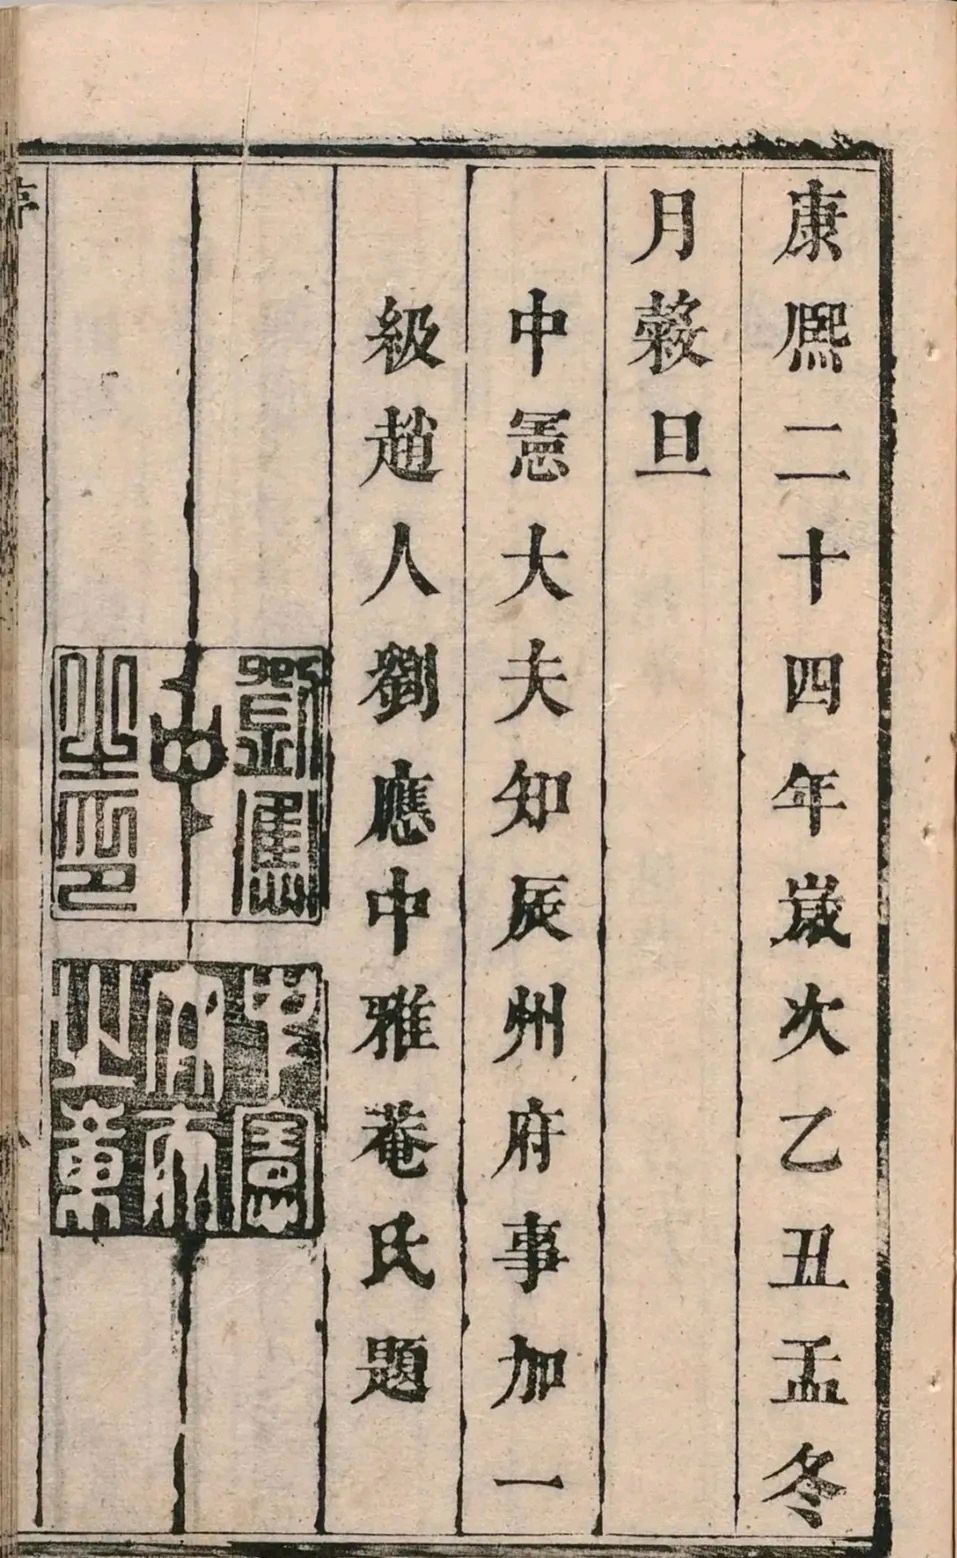 康熙二十四年歲次乙丑孟冬
月穀旦
中憲大夫知辰州府事加一
級趙人劉應中雅菴氏題
劉應
中
之印
中憲
大夫
之章
序